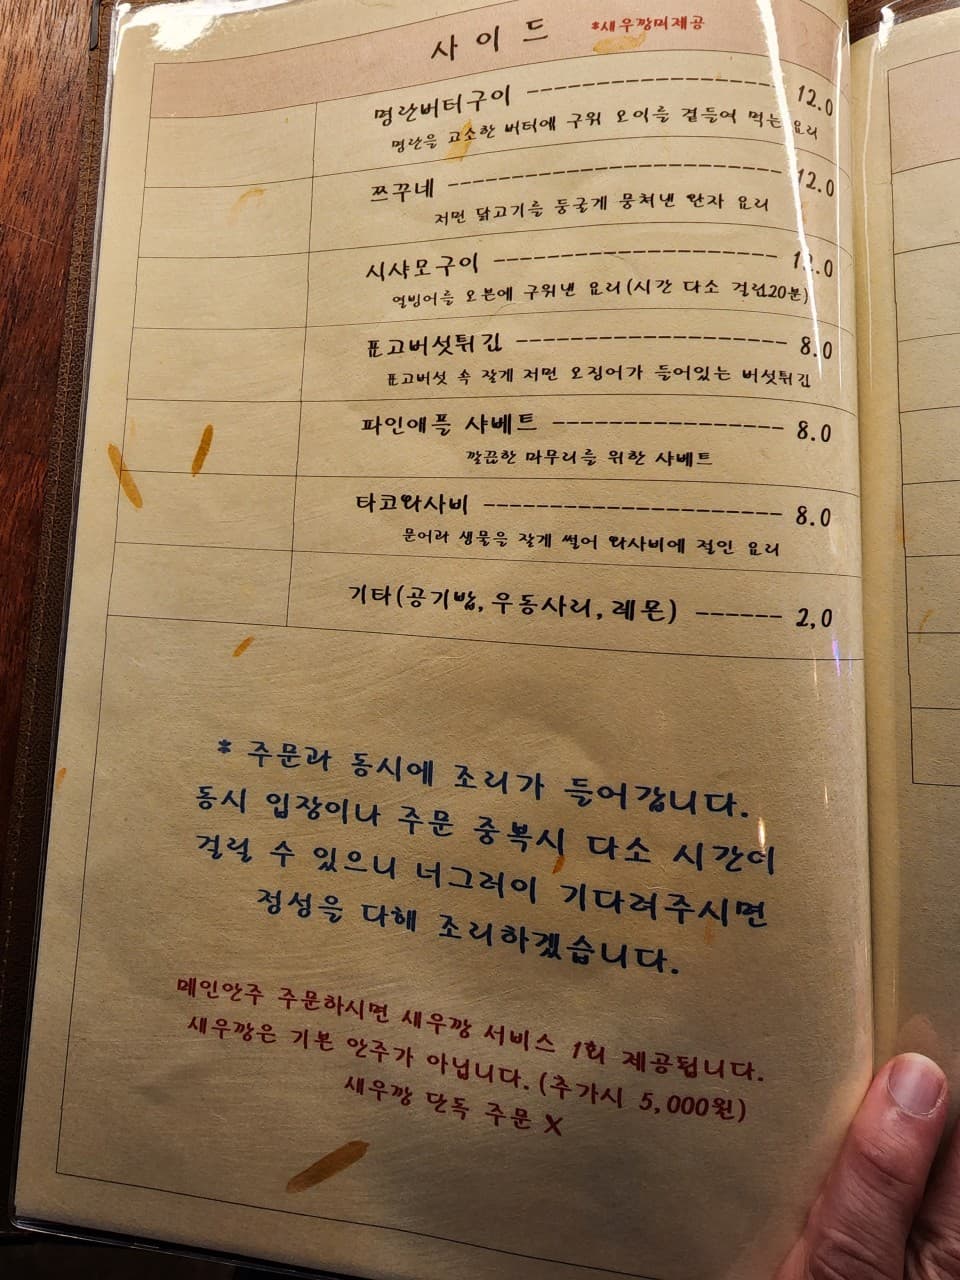 사이드 *새우깡미제공
명란버터구이 ------------------- 12.0
명란을 고소한 버터에 구워 오이를 곁들여 먹는 요리
쯔꾸네 ------------------------- 12.0
저민 닭고기를 둥굴게 뭉쳐낸 완자 요리
시샤모구이 ---------------------
열빙어를 오븐에 구워낸 요리(시간 다소 걸림20분)
표고버섯튀김 -------------------- 8.0
표고버섯 속 잘게 저민 오징어가 들어있는 버섯튀김
파인애플 샤베트 ----------------- 8.0
깔끔한 마무리를 위한 샤베트
타코와사비 ---------------------- 8.0
문어과 생물을 잘게 썰어 와사비에 절인 요리
기타(공기밥,우동사리,레몬) ------ 2,0
* 주문과 동시에 조리가 들어갑니다.
동시 입장이나 주문 중복시 다소 시간이
걸릴 수 있으니 너그러이 기다려주시면
정성을 다해 조리하겠습니다.
메인안주 주문하시면 새우깡 서비스 1회 제공됩니다.
새우깡은 기본 안주가 아닙니다.(추가시 5,000원)
새우깡 단독 주문 X